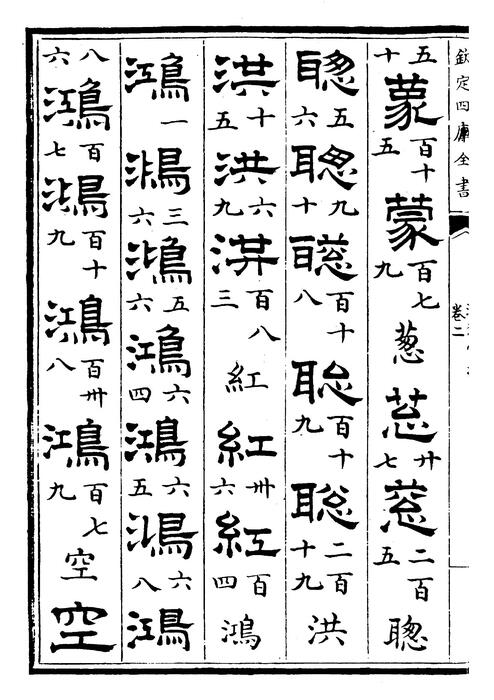 欽定四庫全書
卷二
五十蒙百十五蒙百七九葱苾廿七蔥二百五聰
聰五六聰九十聰百十八聰百十九聰二百十九洪
洪十五洪六九洪百八三紅紅卅六紅百四鴻
鴻一鴻三六鴻五六鴻六四鴻六五鴻六八鴻
八六鴻百七鴻百十九鴻百卅八鴻百七九空空